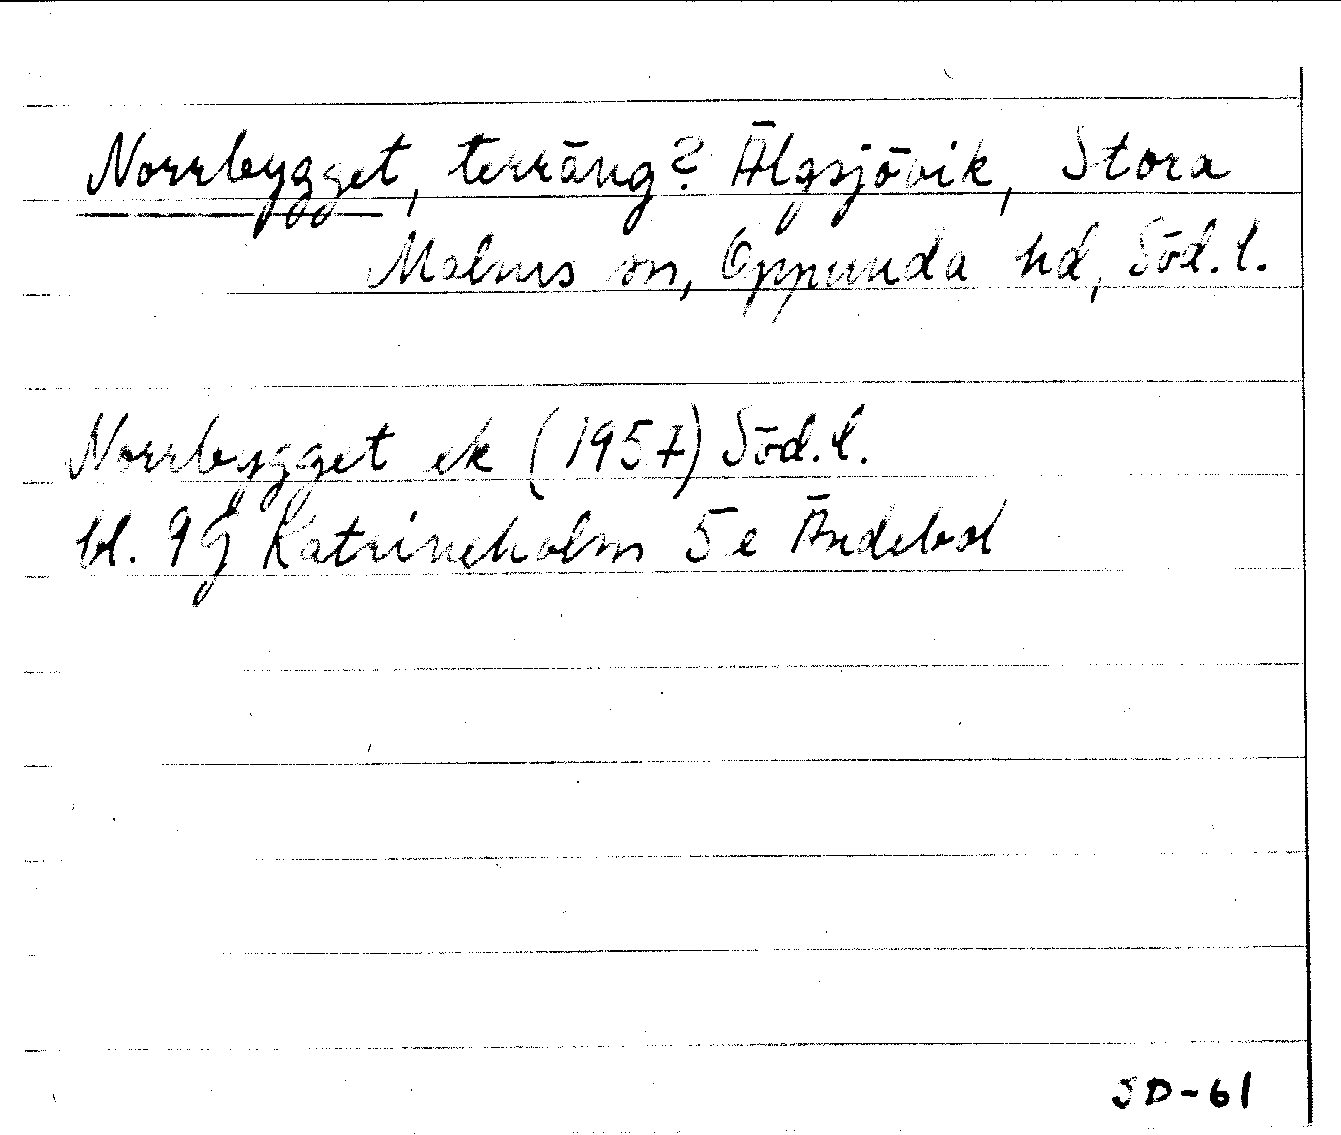 Norrbygget, terräng? Älgsjövik, Stora
Malms sn, Oppunda hd, Söd. l.
Norrbygget ek (1957) Söd. l.
bl. 9G Katrineholm 5e Ändebol
SD-61